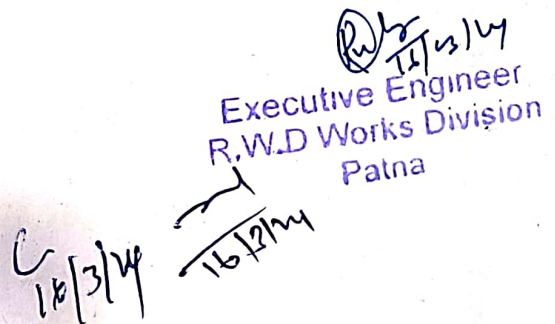 16/03/24
Executive Engineer
R.W.D Works Division
Patna
16/3/24